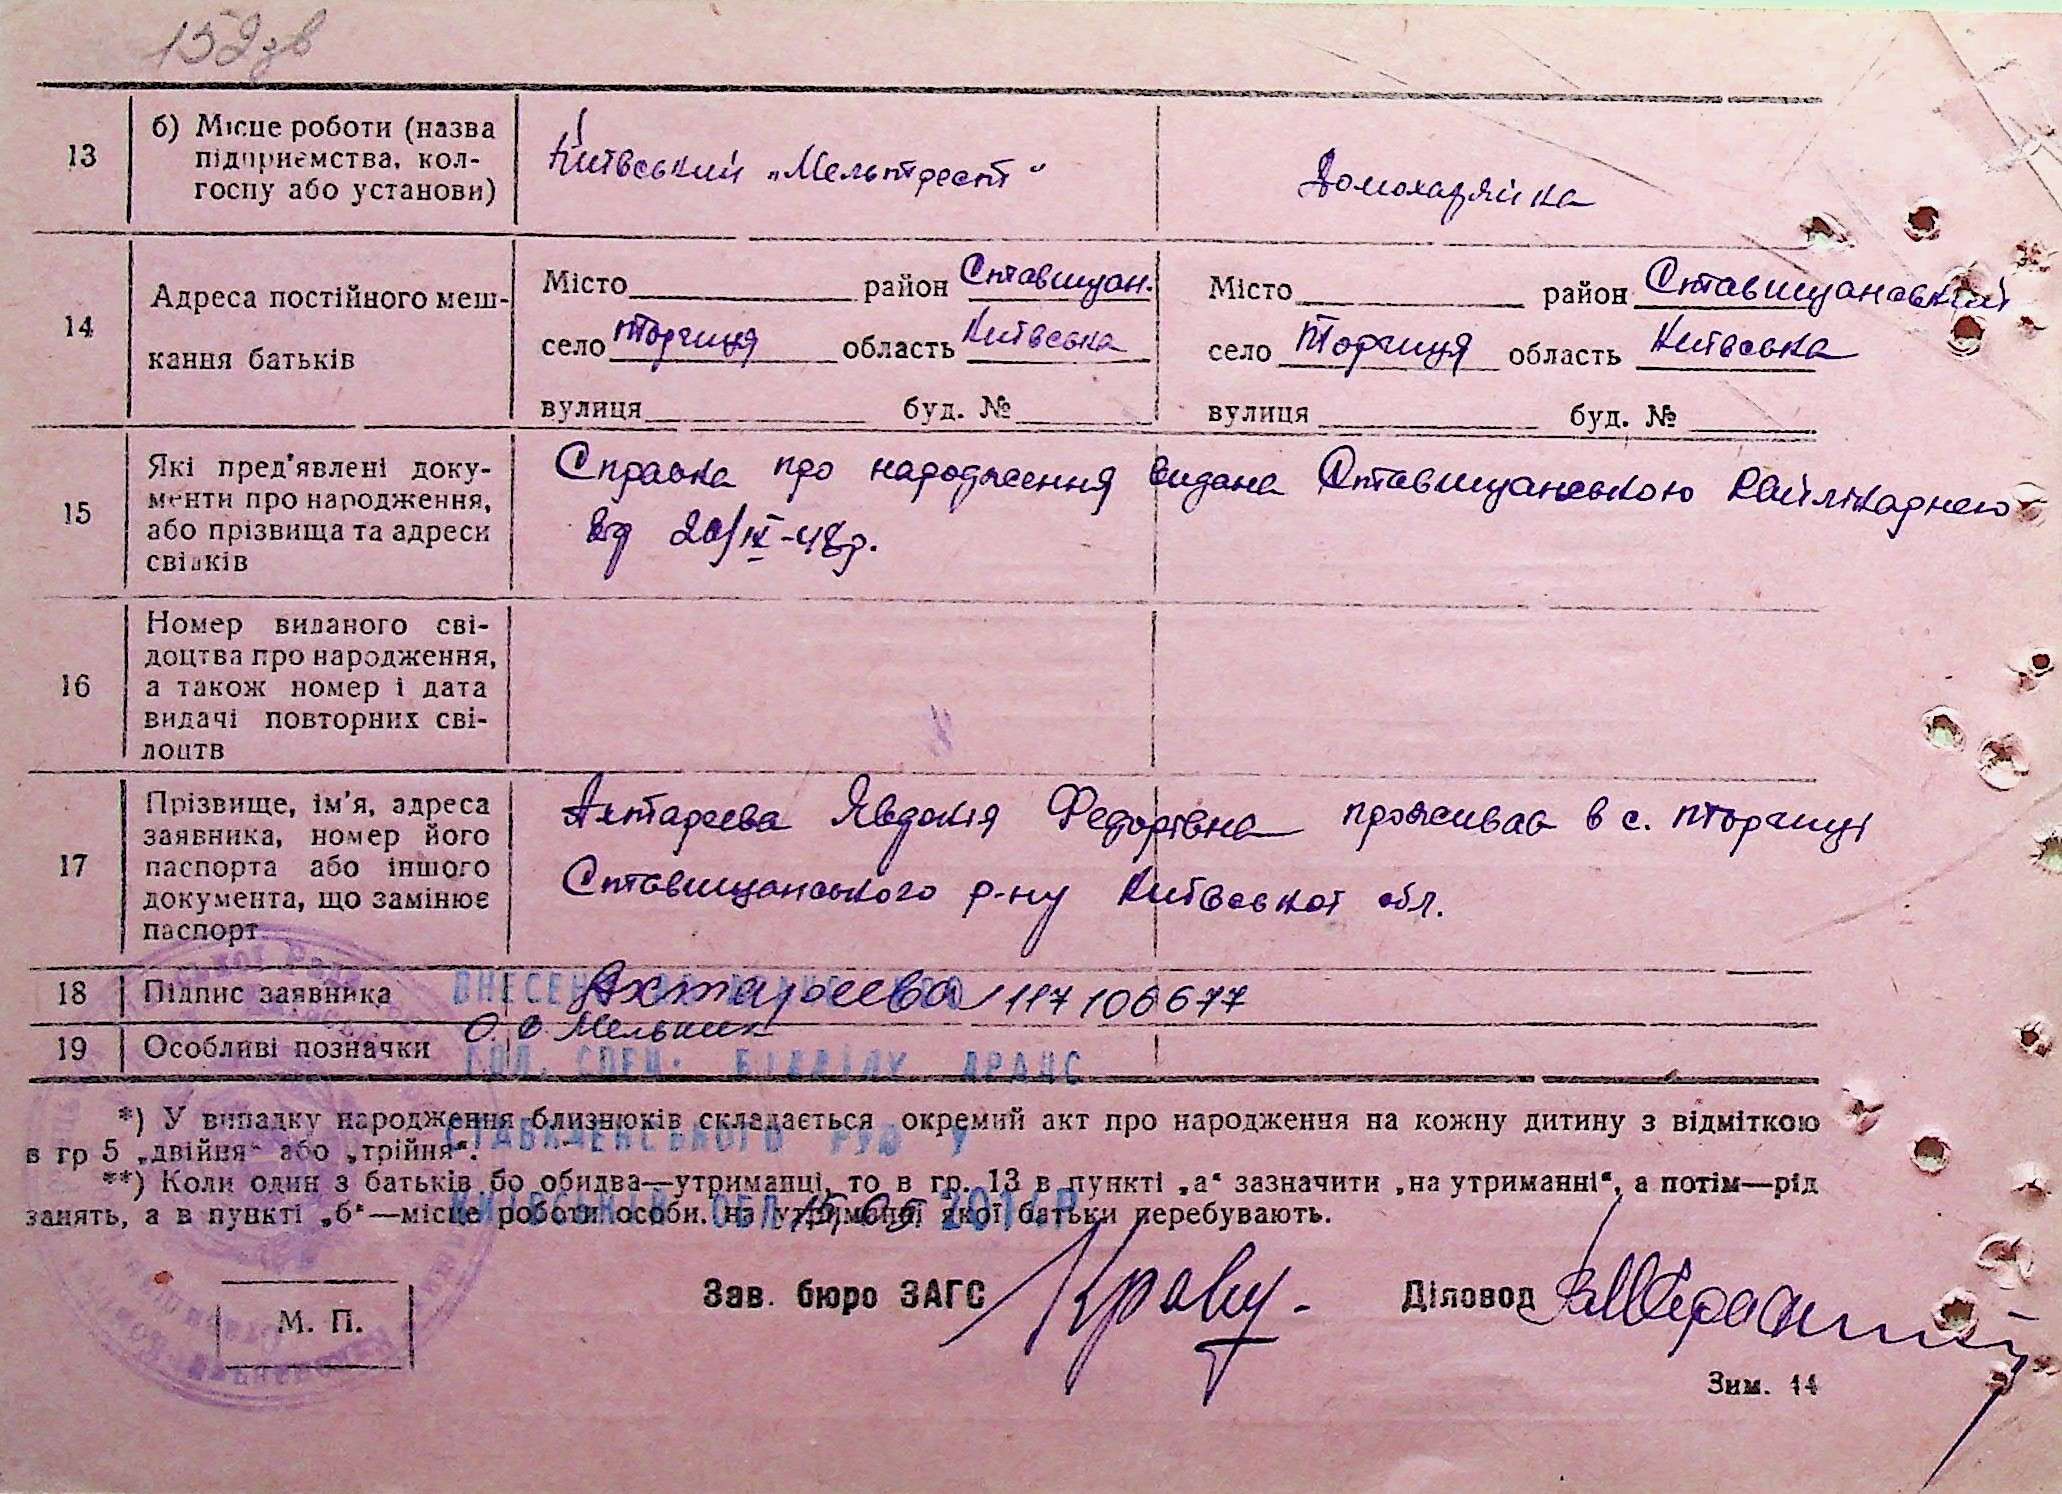 152 зв
13
б) Місце роботи (назва
підприємства, кол-
госпу або установи)
Київський „Мельтрест"
Домохазяйка
14
Адреса постійного меш-
кання батьків
Місто район Ставищан.
село Торчиця область Київська
вулиця буд. №
Місто район Ставищанський
село Торчиця область Київська
вулиця буд. №
15
Які пред'явлені доку-
менти про народження,
або прізвища та адреси
свідків
Справка про народження видана Ставищанською Райлікарнею
від 20/IX-48р.
16
Номер виданого сві-
доцтва про народження,
а також номер і дата
видачі повторних сві-
доцтв
17
Прізвище, ім'я, адреса
заявника, номер його
паспорта або іншого
документа, що замінює
паспорт
Ахтареева Явдокія Федорівна проживає в с. Торчиці
Ставищанського р-ну Київської обл.
18
Підпис заявника
Ахтареева
117106677
19
Особливі позначки
О. О. Мельник
ГОЛ. СПЕЦ. ВІДДІЛУ ДРАЦС
РУЮ У
КИЇВСЬКІЙ ОБЛ 15.05 201 Р
*) У випадку народження близнюків складається окремий акт про народження на кожну дитину з відміткою
в гр 5 „двійня“ або „трійня“.
**) Коли один з батьків бо обидва—утриманці, то в гр. 13 в пункті „а“ зазначити „на утриманні“, а потім—рід
занять, а в пункті „б“—місце роботи особи. на утриманні якої батьки перебувають.
М. П.
Зав. бюро ЗАГС
Діловод
Зим. 14